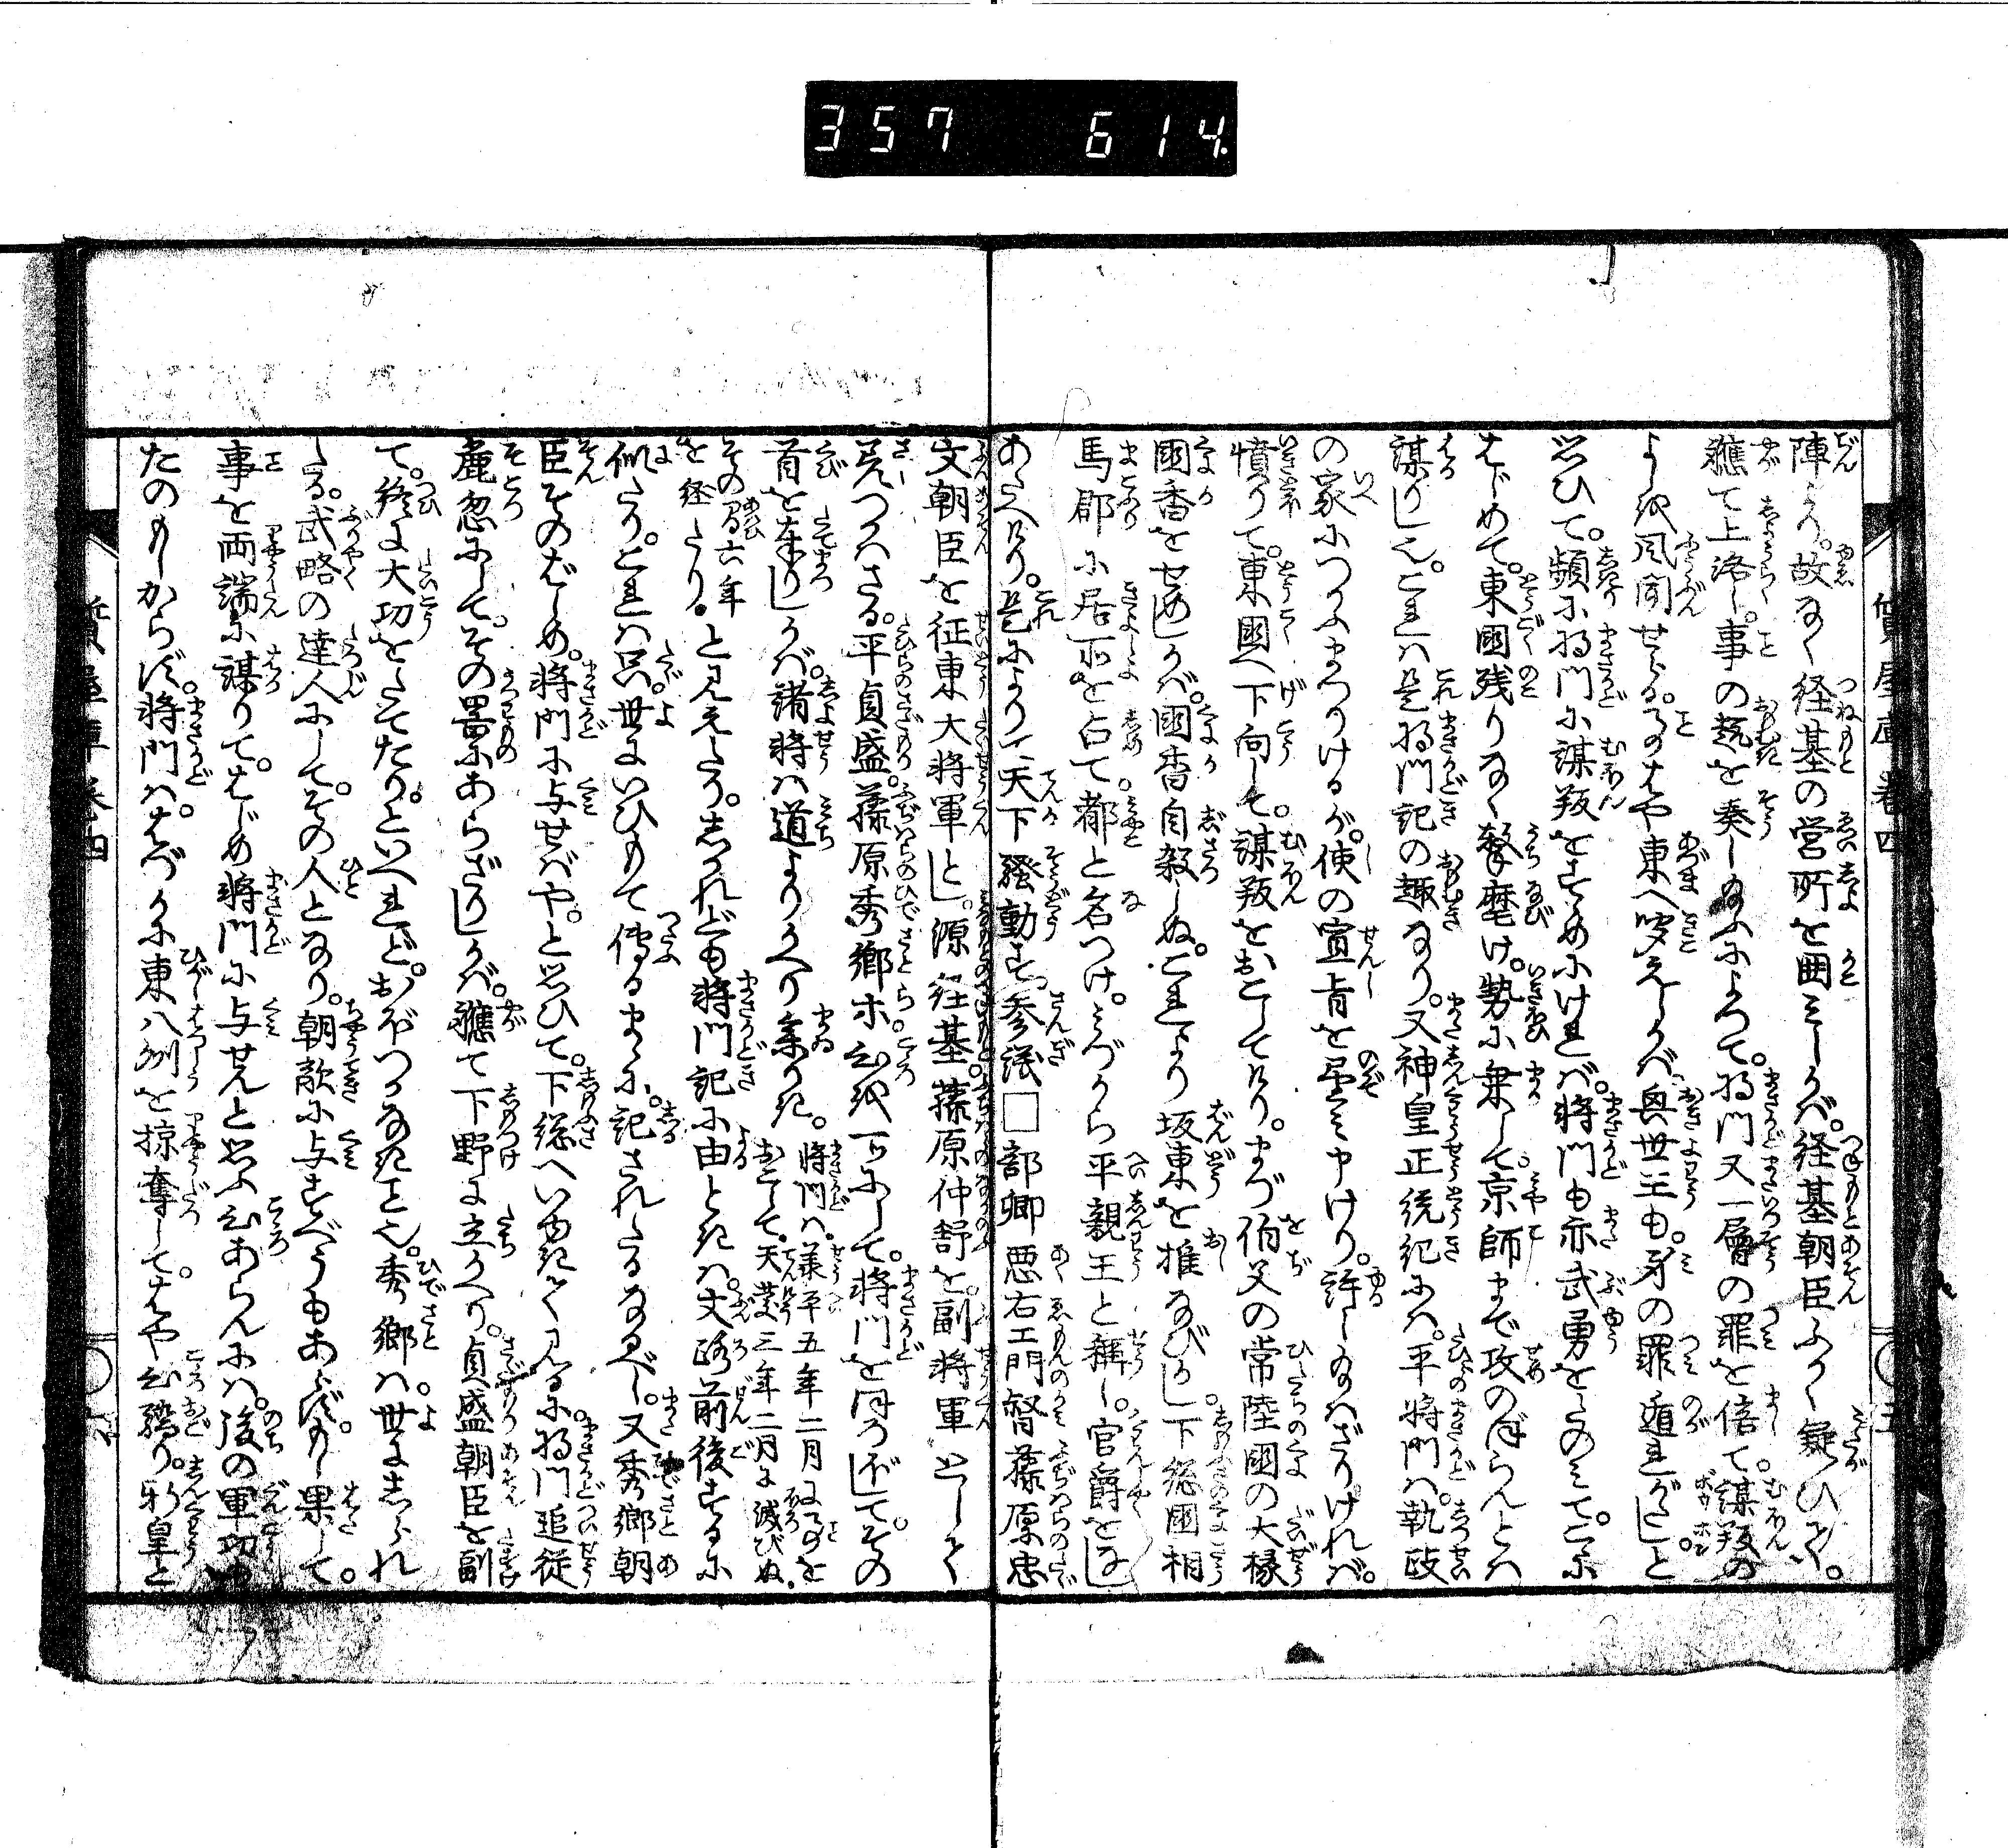 357 614.
質屋庫 巻四
陣より。故なく経基の営所を囲みしかば。経基朝臣ふかく疑ひて。
軈て上洛し。事の趣を奏し給ふによつて。将門又一層の罪を倍て。謀叛の
よし風聞せらる。事のはや東へ聞えしかば。興世王も。身の罪遁れがたしと
思ひて。頻に将門に謀叛をすゝめければ。将門も亦武勇をたのみて。こゝに
はじめて。東國残りなく撃靡け。勢に乗して京師まで攻のぼらんとは
謀りし也。これは是将門記の趣なり。又神皇正統紀には。平将門は。執政
の家につかふまつりけるが。使の宣旨を望み申けり。許し給はざりければ。
憤りて。東國へ下向して。謀叛をおこしてけり。まづ伯父の常陸國の大掾
國香をせめしかば。國香自殺しぬ。これより坂東を推なびかし。下総國相
馬郡に居所を占て。都と名つけ。みづから平親王と稱し。官爵をなし
あたへけり。是によりて天下騒動す。参議□部卿兼右エ門督藤原忠
文朝臣を征東大将軍とし。源経基。藤原仲舒を。副将軍として
さしつかはさる。平貞盛。藤原秀郷等。心を一にして。将門をほろぼして。その
首を奉りしかば。諸将は道よりかへり参りき。将門は。承平五年二月に事を
おこして。天慶三年二月に滅びぬ。
その間六年
を経たり。と見えたり。しかれども将門記に由ときは。文路前後するに
似たり。これは只。世にいひもて傳るまゝに。記されたるなるべし。又秀郷朝
臣そのはじめ。将門に与せばや。と思ひて。下総へいゆきて見るに。将門追従
麁忽にして。その器にあらざりしかば。軈て下野に立かへり。貞盛朝臣を副
て。終に大功をたてたり。といへれど。おぼつかなきこと也。秀郷は。世にしられ
たる。武略の達人にして。その人となり。朝敵に与すべうもあらずかし。果して。
事を両端に謀りて。はじめ将門に与せんと思ふ心あらんには。後の軍功も
たのもしからず。将門は。はづかに東八州を掠奪して。はや心驕り。新皇と
質屋庫 巻四